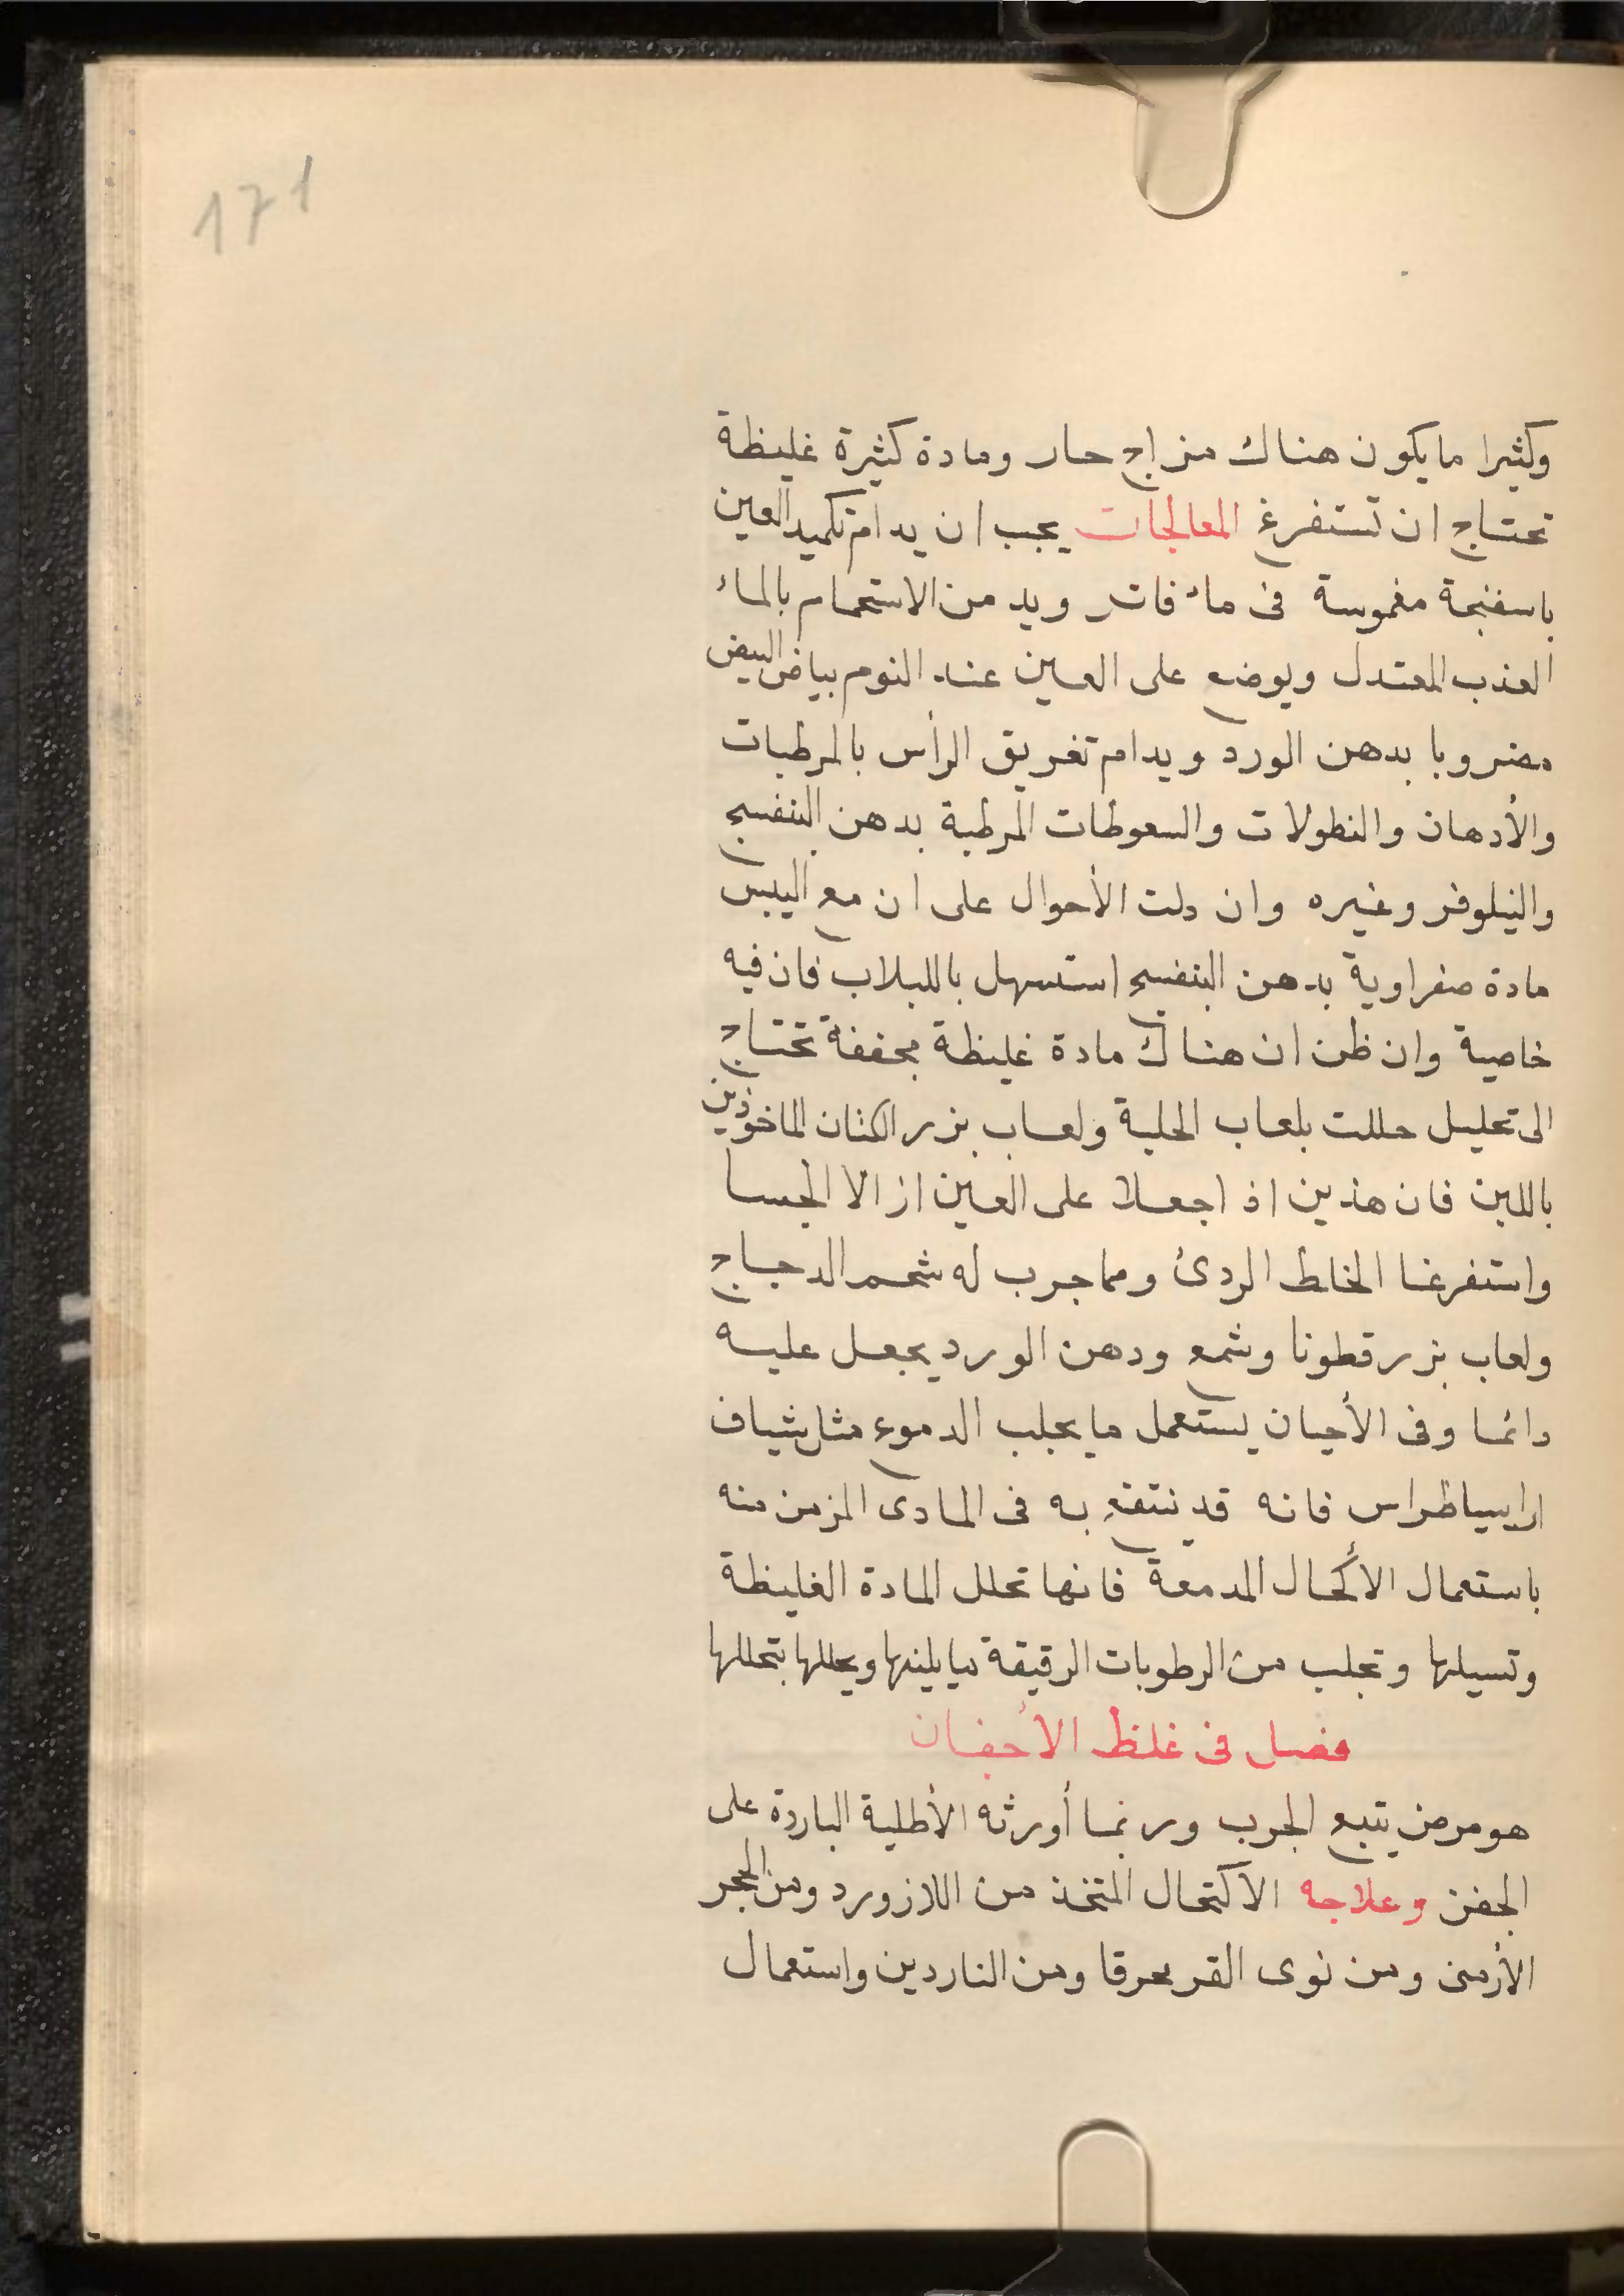 171
وكثيرا ما يكون هناك مزاج حار ومادة كثيرة غليظة
تحتاج ان تستفرغ المعالجات يجب ان يدام تكميد العين
باسفنجة مغموسة فى ماء فاتر ويدمن الاستحمام بالماء
العذب المعتدل ويوضع على العين عند النوم بياض البيض
مضروبا بدهن الورد ويدام تغريق الرأس بالمرطبات
والأدهان والنطولات والسعوطات المرطبة بدهن البنفسج
والنيلوفر وغيره وان دلت الأحوال على ان مع اليبس
مادة صفراوية بدهن البنفسج استسهل باللبلاب فان فيه
خاصية وان ظن ان هناك مادة غليظة مجففة تحتاج
الى تحليل حللت بلعاب الحلبة ولعاب بزر الكتان الماخوذين
باللبن فان هذين اذا جعلا على العين ازالا الجسا
واستفرغا الخلط الردئ ومما جرب له شحم الدجاج
ولعاب بزر قطونا وشمع ودهن الورد يجعل عليه
دائما وفى الأحيان يستعمل ما يجلب الدموع مثل شياف
اراسياطراس فانه قد ننتفع به فى المادى المزمن منه
باستعمال الأكحال المدمعة فانها تحلل المادة الغليظة
وتسيلها وتجلب من الرطوبات الرقيقة ما يلينها ويحللها بتحللها
فصل فى غلظ الأجفان
هو مرض يتبع الجرب وربما أورثه الأطلية الباردة على
الجفن وعلاجه الاكتحال المتخذ من اللازورد ومن الحجر
الأرمنى ومن نوى القر محرقا ومن الناردين واستعمال